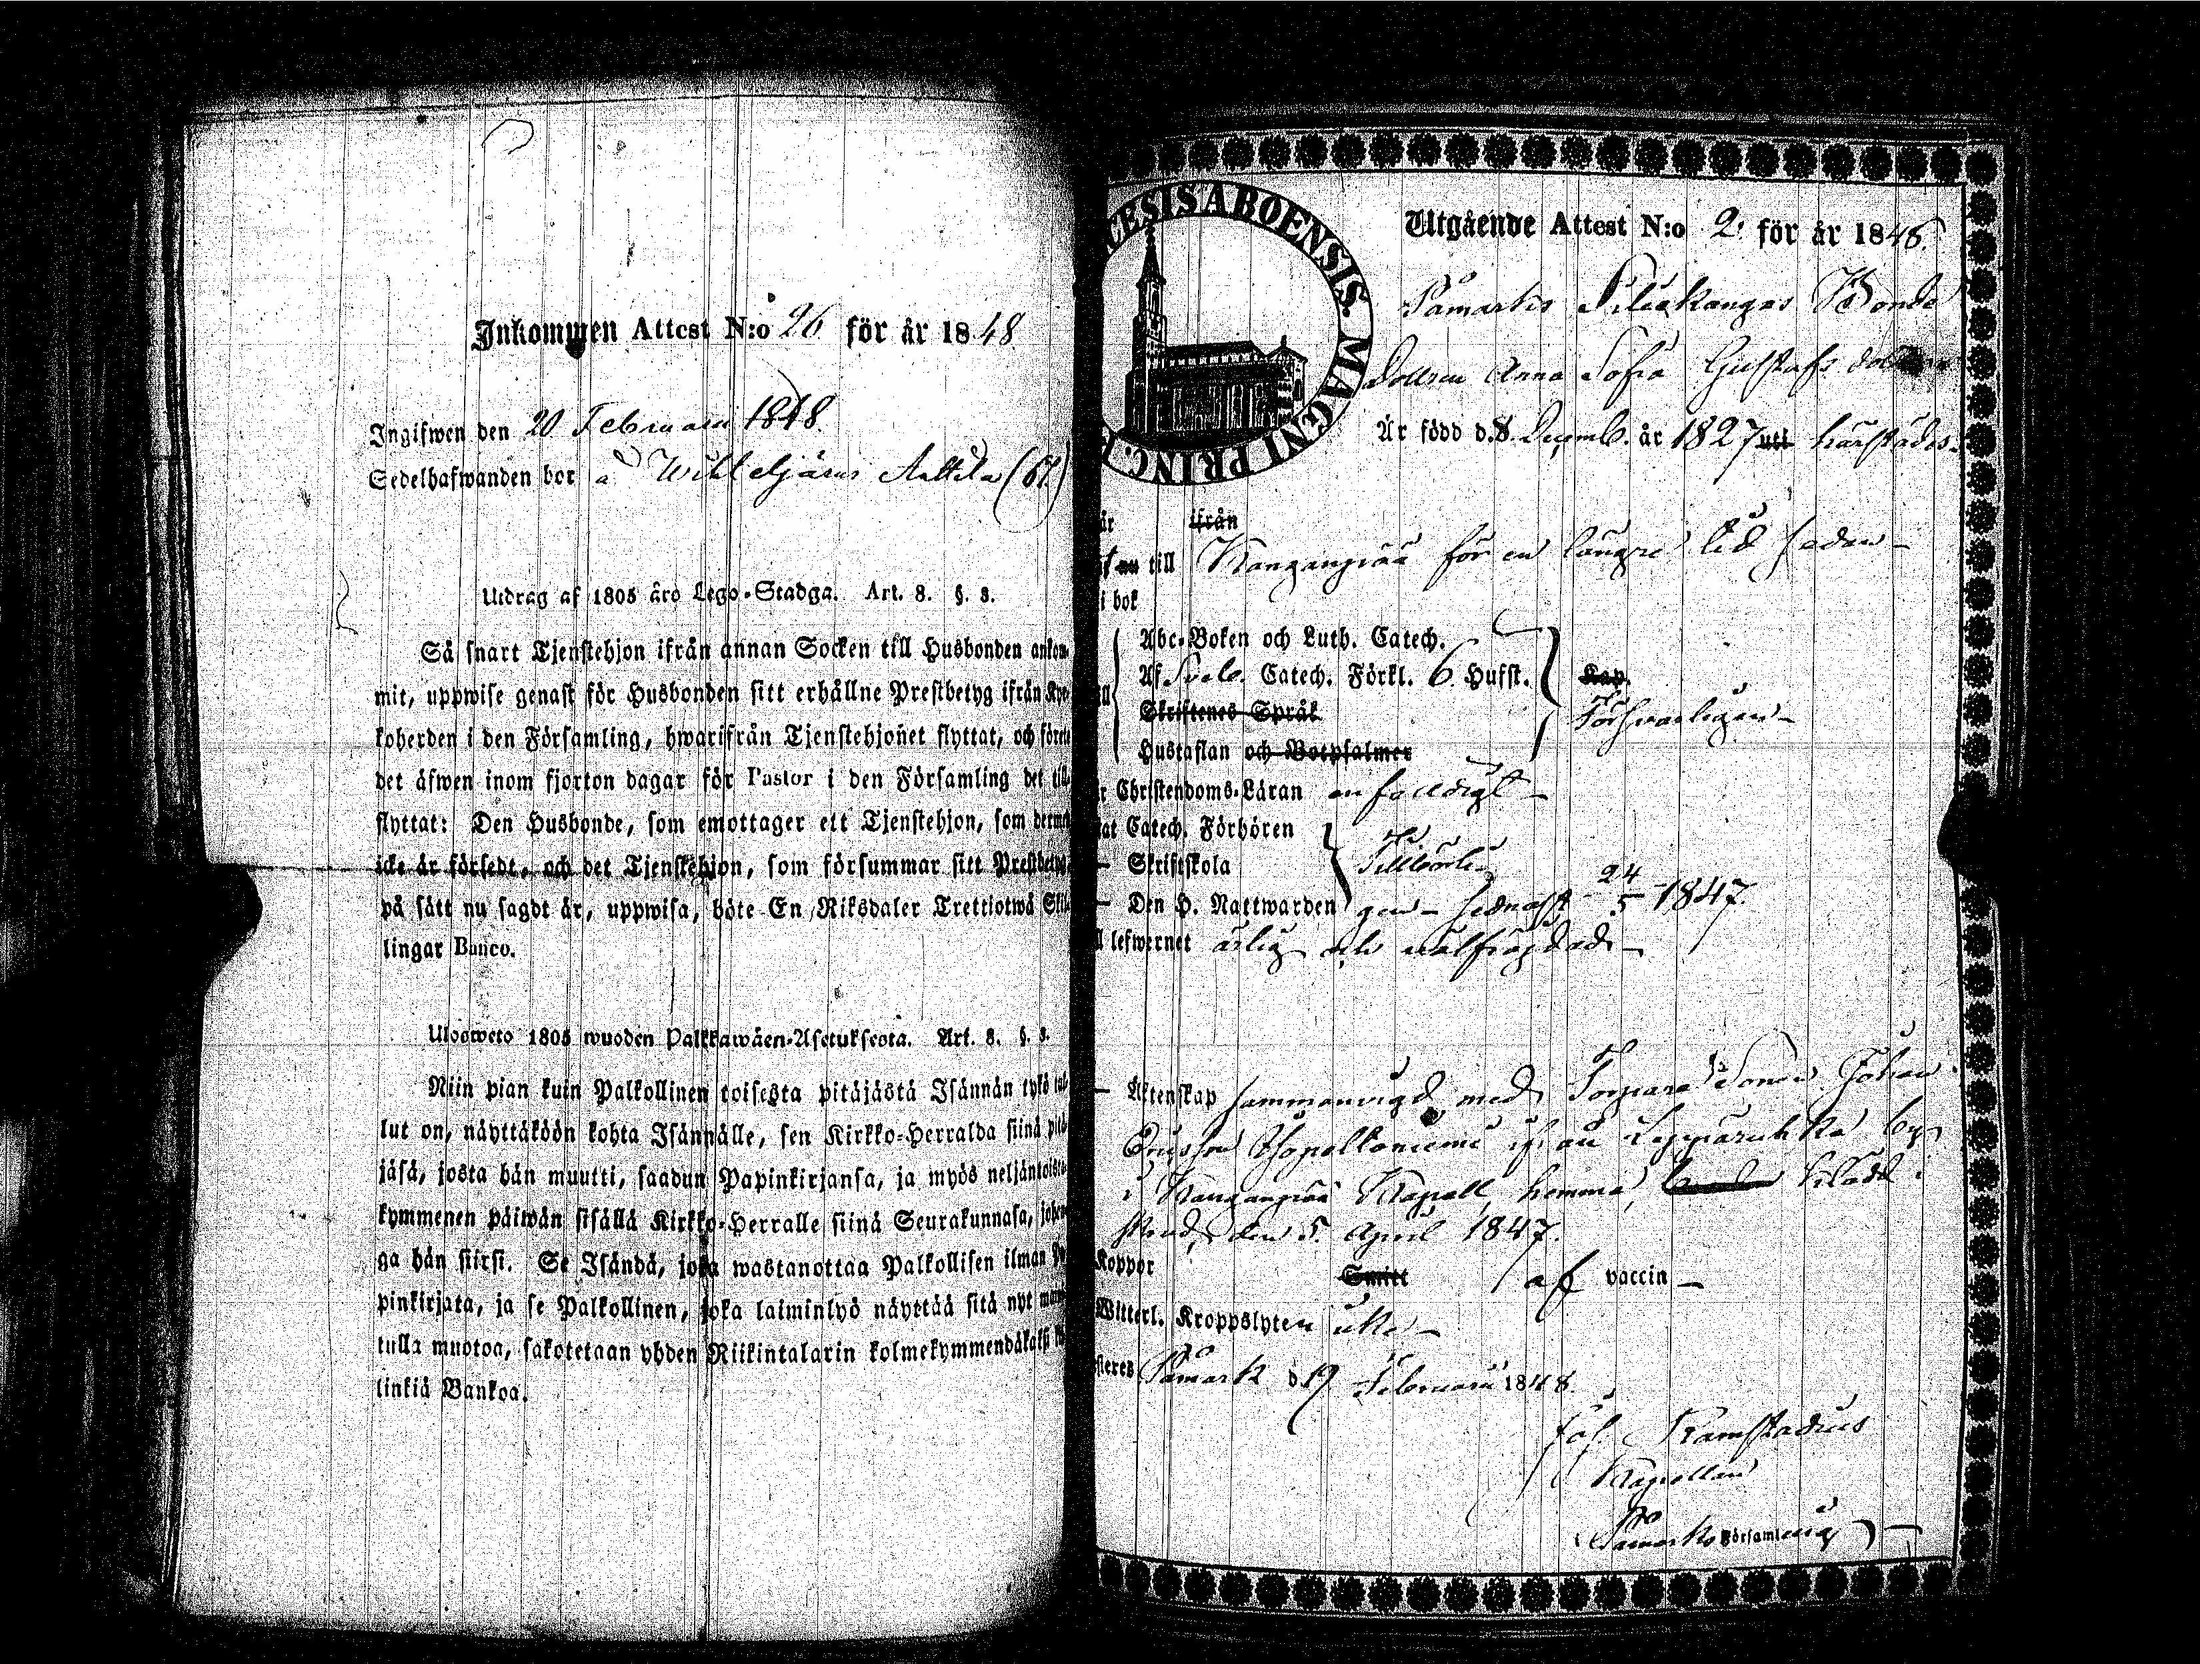 Inkommen Attest N:o 26 för år 1848
Ingifwen den 20 Februari 1848.
Sedelhafwanden bor å Wihteljärwi Anttila (61.)
Utdrag af 1805 års Lego-Stadga. Art. 8. §. 3.
Så snart Tjenstehjon ifrån annan Socken till Husbonden ankom-
mit, uppwise genast för Husbonden sitt erhållne Prestbetyg ifrån Kyr-
koherden i den Församling, hwarifrån Tjenstehjonet flyttat, och förete
det äfwen inom fjorton dagar för Pastor i den Församling det till-
flyttat: Den Husbonde, som emottager ett Tjenstehjon, som dermed
icke är försedt, och det Tjenstehjon, som försummar sitt Prestbetyg,
på sätt nu sagdt är, uppwisa, böte En Riksdaler Trettiotwå Skil-
lingar Banco.
Ulosweto 1805 wuoden Palkkawäen-Asetuksesta. Art. 8. §. 3.
Niin pian kuin Palkollinen toisesta pitäjästä Isännän tykö tul-
lut on, näyttäköön kohta Isännälle, sen Kirkko-Herralda siinä pitä-
jäsä, josta hän muutti, saadun Papinkirjansa, ja myös neljäntoista-
kymmenen päiwän sisällä Kirkko-Herralle siinä Seurakunnasa, johen-
ga hän siirsi. Se Isändä, joka wastanottaa Palkollisen ilman Pa-
pinkirjata, ja se Palkollinen, joka laiminlyö näyttää sitä nyt
tulla muotoa, sakotetaan yhden Riikintalarin kolmekymmendäkaksi
linkiä Bankoa.
CESIS ABOENSIS. MAGNI PRINC.
Utgående Attest N:o 2. för år 1848.
Påmarks Bonde
Dottren Anna Sofia Gustafs dotter
Är född d. 8. Decemb. år 1827 uti härstädes.
är ifrån
till Kangangrää för en längre tid sedan –
i bok
Abc-Boken och Luth. Catech.
Af Sveb. Catech. Förkl. 6 Hufst. Kap.
Skriftenes Språk Försvarligen –
Hustaflan och Botpsalmer
Christendoms-Läran enfaldigt –
Catech. Förhören
– Skriftskola Tillbörli-
– Den H. Nattwarden gen – sednast 24/5 1847.
lefwernet ärlig och wälfrägdad –
– Äktenskap sammanvigd med Torpare Sonen Johan
Ericsson af Leppäruhka by
i Kapell, hemma,
stånd, den 5. April 1847.
Koppor Smitt af vaccin –
Witterl. Kroppslyten icke –
Påmark d. 19 Februari 1848.
Joh. Ramstadius
Kapellan
Påmarks Församling